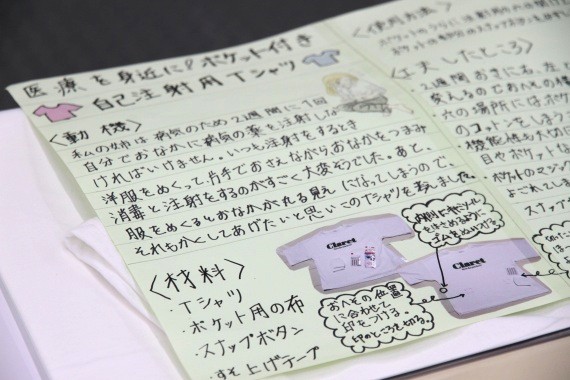 医療を身近に!ポケット付き
自己注射用Tシャツ
〈動機〉
私の姉は病気のため2週間に1回
自分でおなかに病気の薬を注射しな
ければいけません。いつも注射をするとき
洋服をめくって、片手でおさえながらおなかをつまみ
消毒と注射をするのがすごく大変そうでした。あと、
服をめくるとおなかがまる見え になってしまうので、
それもかくしてあげたいと思いこのTシャツを考えました。
〈材料〉
・Tシャツ
・ポケット用の布
・スナップボタン
・すそ上げテープ
Claret
Claret
おへその位置
に合わせて
印をつける。
印のところを切る。
〈使用方法〉
〈工夫したところ〉
・2週間おきに右、左と
変えるので
六の場所にはポケ
のコットンをしまう
・機能性も大切に
目やポケットな
ポケットのマジック
よごれてしま
スナップボ